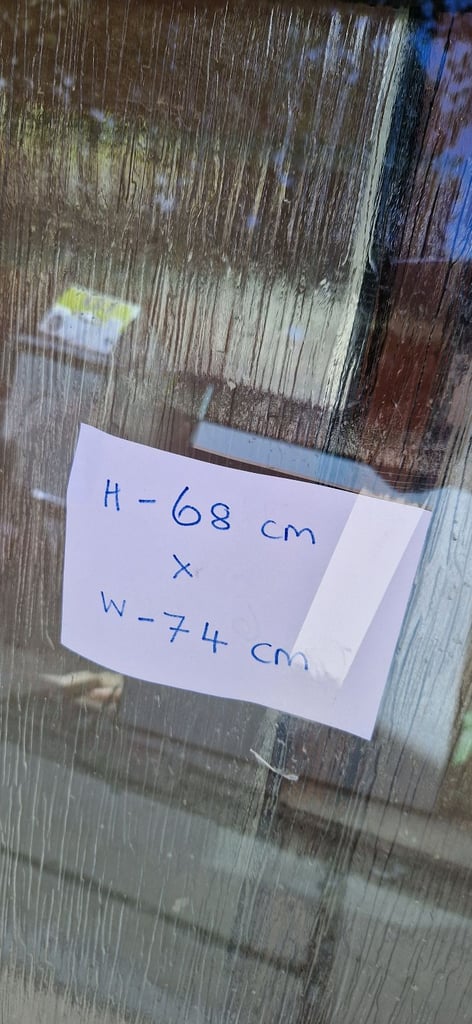 H - 68 cm
x
W - 74 cm